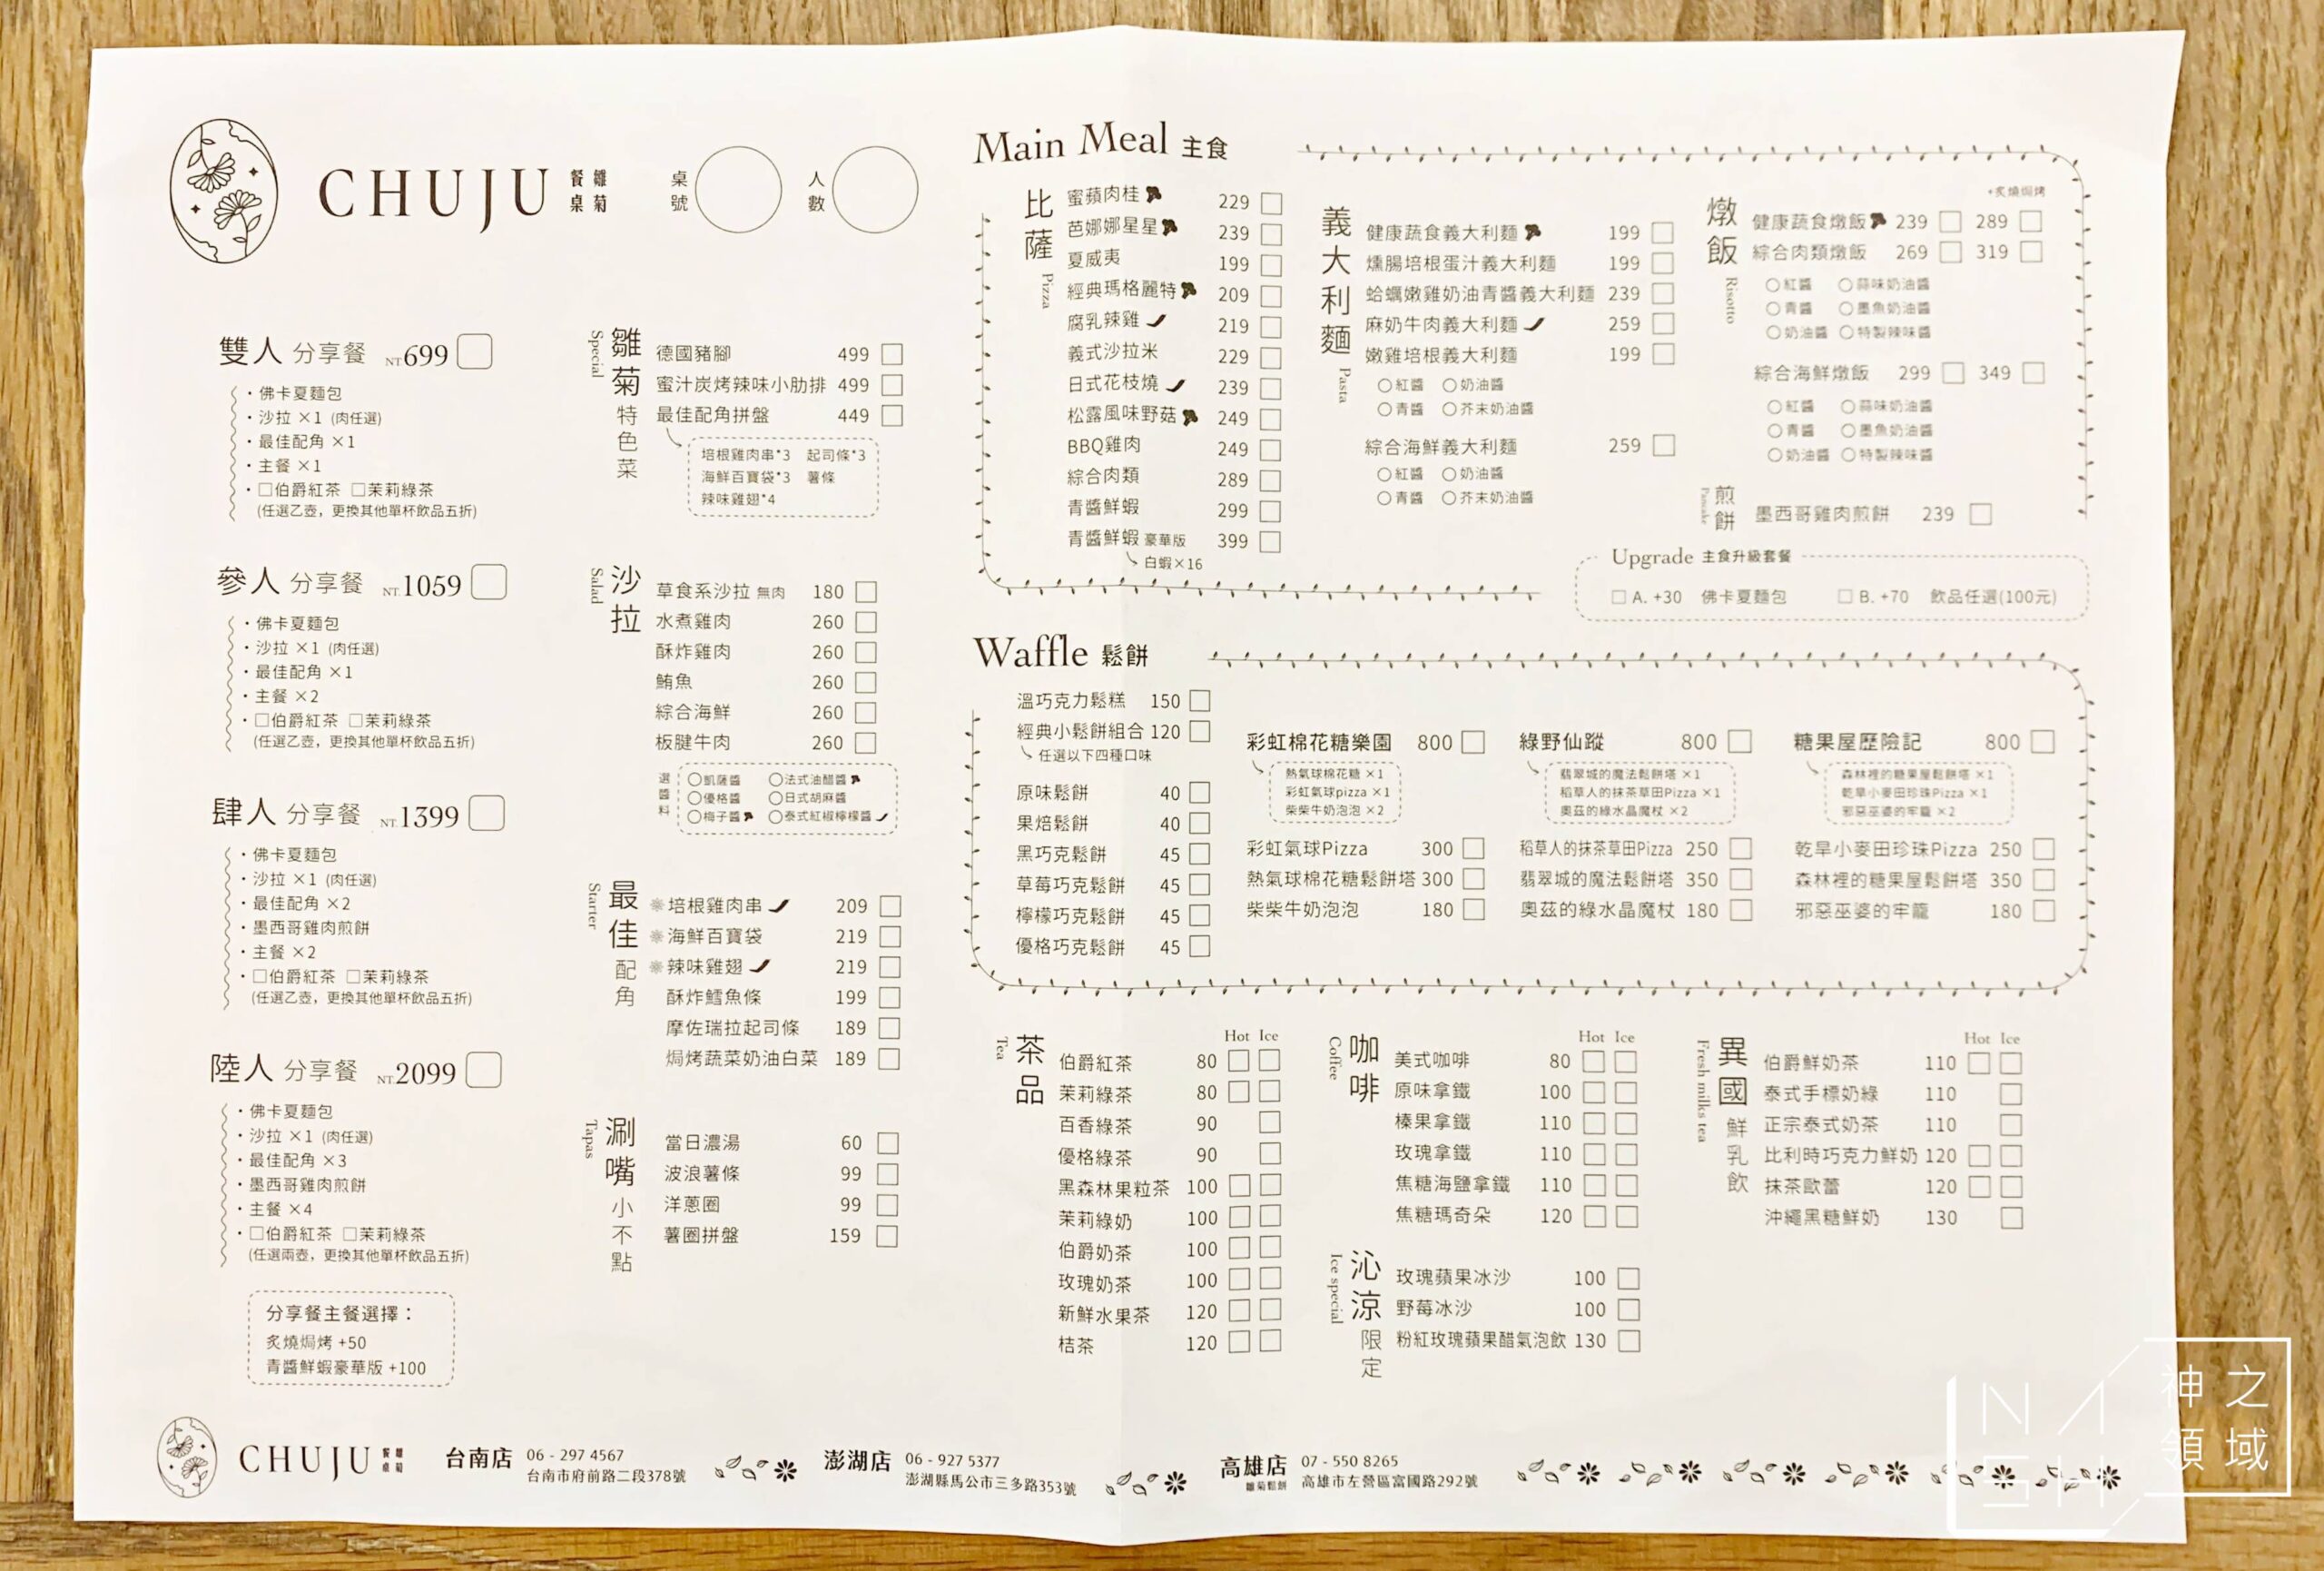 CHUJU 雛菊餐桌
桌號
人數
雙人 分享餐 NT.699
・佛卡夏麵包
・沙拉 ×1 (肉任選)
・最佳配角 ×1
・主餐 ×1
・□伯爵紅茶 □茉莉綠茶
(任選乙壺，更換其他單杯飲品五折)
參人 分享餐 NT.1059
・佛卡夏麵包
・沙拉 ×1 (肉任選)
・最佳配角 ×1
・主餐 ×2
・□伯爵紅茶 □茉莉綠茶
(任選乙壺，更換其他單杯飲品五折)
肆人 分享餐 NT.1399
・佛卡夏麵包
・沙拉 ×1 (肉任選)
・最佳配角 ×2
・墨西哥雞肉煎餅
・主餐 ×2
・□伯爵紅茶 □茉莉綠茶
(任選乙壺，更換其他單杯飲品五折)
陸人 分享餐 NT.2099
・佛卡夏麵包
・沙拉 ×1 (肉任選)
・最佳配角 ×3
・墨西哥雞肉煎餅
・主餐 ×4
・□伯爵紅茶 □茉莉綠茶
(任選兩壺，更換其他單杯飲品五折)
分享餐主餐選擇：
炙燒焗烤 +50
青醬鮮蝦豪華版 +100
雛菊特色菜 Special
德國豬腳 499
蜜汁炭烤辣味小肋排 499
最佳配角拼盤 449
培根雞肉串*3 起司條*3
海鮮百寶袋*3 薯條
辣味雞翅*4
沙拉 Salad
草食系沙拉 無肉 180
水煮雞肉 260
酥炸雞肉 260
鮪魚 260
綜合海鮮 260
板腱牛肉 260
選醬料
○凱薩醬 ○法式油醋醬
○優格醬 ○日式胡麻醬
○梅子醬 ○泰式紅椒檸檬醬
最佳配角 Starter
培根雞肉串 209
海鮮百寶袋 219
辣味雞翅 219
酥炸鱈魚條 199
摩佐瑞拉起司條 189
焗烤蔬菜奶油白菜 189
涮嘴小不點 Tapas
當日濃湯 60
波浪薯條 99
洋蔥圈 99
薯圈拼盤 159
Main Meal 主食
比薩 Pizza
蜜蘋肉桂 229
芭娜娜星星 239
夏威夷 199
經典瑪格麗特 209
腐乳辣雞 219
義式沙拉米 229
日式花枝燒 239
松露風味野菇 249
BBQ雞肉 249
綜合肉類 289
青醬鮮蝦 299
青醬鮮蝦 豪華版 399
白蝦×16
義大利麵 Pasta
健康蔬食義大利麵 199
燻腸培根蛋汁義大利麵 199
蛤蠣嫩雞奶油青醬義大利麵 239
麻奶牛肉義大利麵 259
嫩雞培根義大利麵 199
○紅醬 ○奶油醬
○青醬 ○芥末奶油醬
綜合海鮮義大利麵 259
○紅醬 ○奶油醬
○青醬 ○芥末奶油醬
燉飯 Risotto
+炙燒焗烤
健康蔬食燉飯 239 289
綜合肉類燉飯 269 319
○紅醬 ○蒜味奶油醬
○青醬 ○墨魚奶油醬
○奶油醬 ○特製辣味醬
綜合海鮮燉飯 299 349
○紅醬 ○蒜味奶油醬
○青醬 ○墨魚奶油醬
○奶油醬 ○特製辣味醬
煎餅 Pancake
墨西哥雞肉煎餅 239
Upgrade 主食升級套餐
□ A. +30 佛卡夏麵包 □ B. +70 飲品任選(100元)
Waffle 鬆餅
溫巧克力鬆糕 150
經典小鬆餅組合 120
任選以下四種口味
原味鬆餅 40
果焙鬆餅 40
黑巧克鬆餅 45
草莓巧克鬆餅 45
檸檬巧克鬆餅 45
優格巧克鬆餅 45
彩虹棉花糖樂園 800
熱氣球棉花糖 ×1
彩虹氣球pizza ×1
柴柴牛奶泡泡 ×2
彩虹氣球Pizza 300
熱氣球棉花糖鬆餅塔 300
柴柴牛奶泡泡 180
綠野仙蹤 800
翡翠城的魔法鬆餅塔 ×1
稻草人的抹茶草田Pizza ×1
奧茲的綠水晶魔杖 ×2
稻草人的抹茶草田Pizza 250
翡翠城的魔法鬆餅塔 350
奧茲的綠水晶魔杖 180
糖果屋歷險記 800
森林裡的糖果屋鬆餅塔 ×1
乾旱小麥田珍珠Pizza ×1
邪惡巫婆的牢籠 ×2
乾旱小麥田珍珠Pizza 250
森林裡的糖果屋鬆餅塔 350
邪惡巫婆的牢籠 180
茶品 Tea
Hot Ice
伯爵紅茶 80
茉莉綠茶 80
百香綠茶 90
優格綠茶 90
黑森林果粒茶 100
茉莉綠奶 100
伯爵奶茶 100
玫瑰奶茶 100
新鮮水果茶 120
桔茶 120
咖啡 Coffee
Hot Ice
美式咖啡 80
原味拿鐵 100
榛果拿鐵 110
玫瑰拿鐵 110
焦糖海鹽拿鐵 110
焦糖瑪奇朵 120
沁涼限定 Ice special
玫瑰蘋果冰沙 100
野莓冰沙 100
粉紅玫瑰蘋果醋氣泡飲 130
異國鮮乳飲 Fresh milks tea
Hot Ice
伯爵鮮奶茶 110
泰式手標奶綠 110
正宗泰式奶茶 110
比利時巧克力鮮奶 120
抹茶歐蕾 120
沖繩黑糖鮮奶 130
CHUJU 雛菊餐桌
台南店 06 - 297 4567
台南市府前路二段378號
澎湖店 06 - 927 5377
澎湖縣馬公市三多路353號
高雄店 07 - 550 8265
雛菊鬆餅 高雄市左營區富國路292號
NASH
神之領域